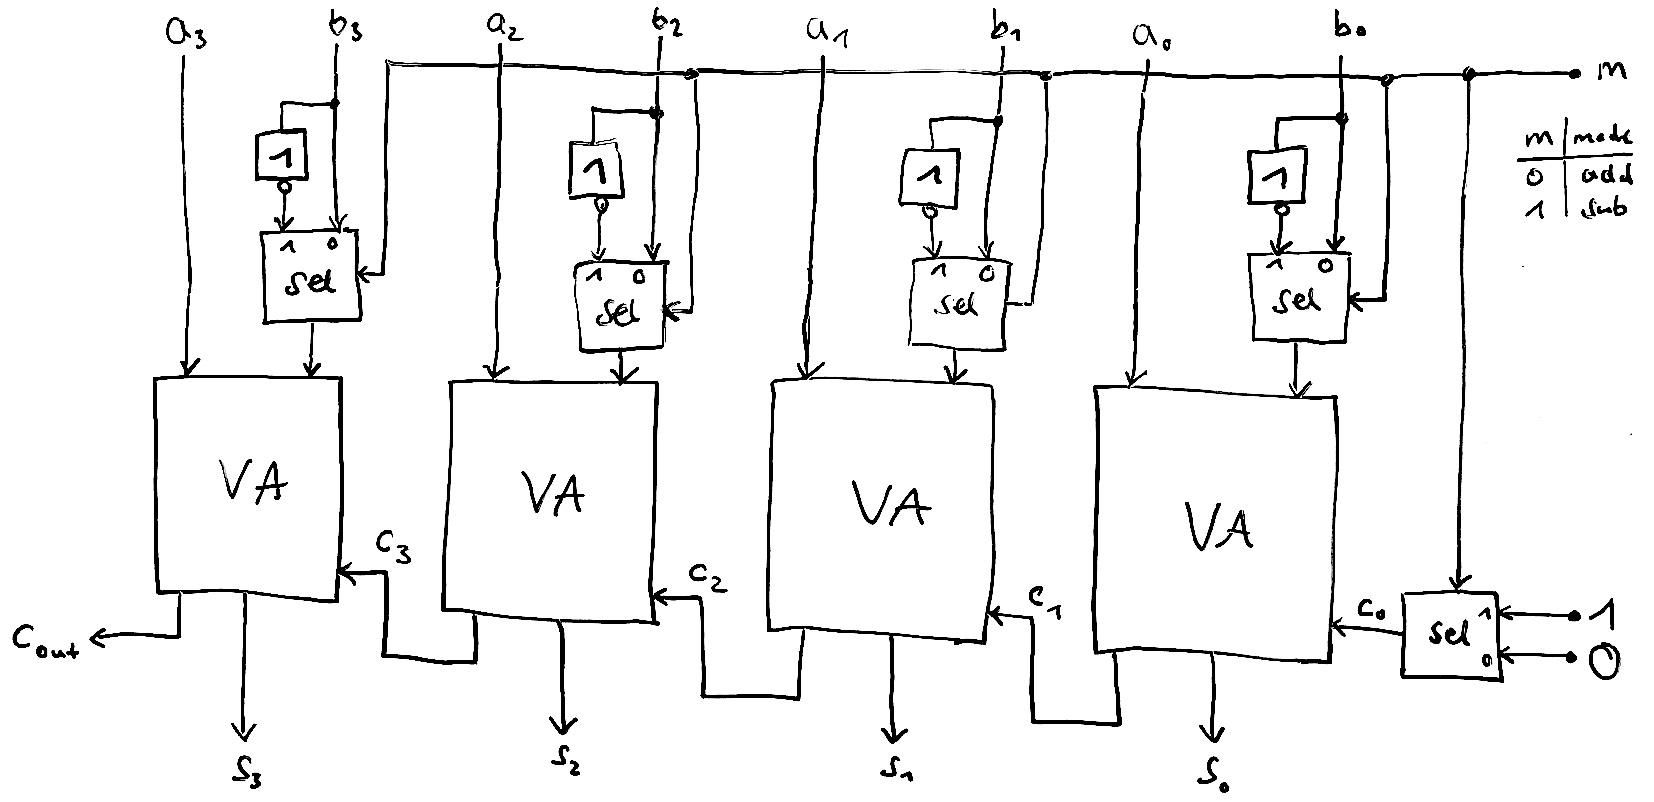 a3 b3 a2 b2 a1 b1 a0 b0
m
m mode
0 add
1 sub
1 1 1 1
1 0 1 0 1 0 1 0
sel sel sel sel
VA VA VA VA
c3 c2 c1 c0
sel 1 1
0 0
Cout
s3 s2 s1 s0